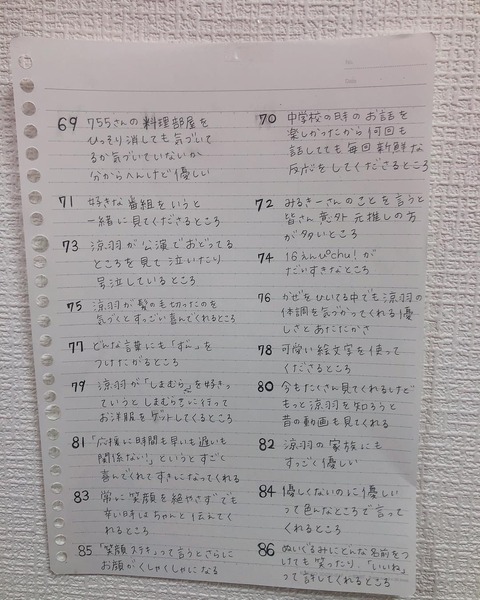 69 755さんの料理部屋を
ひっそり消しても気づいて
るか気づいていないか
分からへんけど優しい
70 中学校の日本のお話を
楽しかったから何回も
話してても毎回新鮮な
反応をしてくださるところ
71 好きな番組をいうと
一緒に見てくださるところ
72 みるきーさんのことを言うと
皆さん意外元推しの方
が多いところ
73 涼羽が公演でおどってる
ところを見て泣いたり
号泣しているところ
74 16えんぴchu!が
だいすきなところ
75 涼羽が髪の毛切ったのを
気づくとすっごい喜んでくれるところ
76 かぜをひいてる中でも涼羽の
体調を気づかってくれる優
しさとあたたかさ
77 どんな言葉にも「ずん」を
つけたがるところ
78 可愛い絵文字を使って
くださるところ
79 涼羽が「しまむら」を好きっ
ていうとしまむらさんに行って
お洋服をゲットしてくるところ
80 今もたくさん見てくれるけど
もっと涼羽を知ろうと
昔の動画も見てくれる
81 「応援に時間も早いも遅いも
関係ない!」というとすごく
喜んでくれてすきになってくれる
82 涼羽の家族にも
すっごく優しい
83 常に笑顔を絶やさずでも
辛い日はちゃんと伝えてく
れるところ
84 優しくないのに優しい
って色んなところで言って
くれるところ
85 「笑顔ステキ」って言うとさらに
お顔がくしゃくしゃになる
86 ぬいぐるみにどんな名前をつ
けても笑ったり、「いいね」
って許してくれるところ